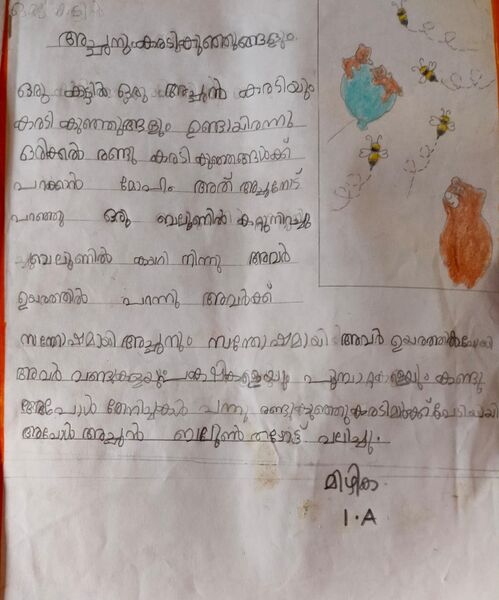 അച്ഛനും കരടികുഞ്ഞുങ്ങളും
ഒരു കാട്ടിൽ ഒരു അച്ചൻ കരടിയും
കരടി കുഞ്ഞുങ്ങളും ഉണ്ടായിരന്നു
ഒരിക്കൽ രണ്ടു കരടി കുഞ്ഞങ്ങൾക്ക്
പറക്കാൻ മോഹം അത് അച്ചനോട്
പറഞ്ഞു ഒരു ബലൂണിൽ കാറ്റുനിറച്ചു
ബലൂണിൽ കയറി നിന്നു അവർ
ഉയരത്തിൽ പറന്നു അവർക്ക്
സന്തോഷമായി അച്ചനും സന്തോഷമായി അവർ ഉയരത്തിൽപോയി
അവർ വണ്ടുകളെയും പക്ഷികളെയും പൂമ്പാറ്റകളെയും കണ്ടു
അപ്പോൾ തേനീച്ചകൾ വന്നു രണ്ടുകുഞ്ഞുകരടിമാർക്ക് പേടിച്ചായി
അപോൾ അച്ചൻ ബലൂൺ താഴോട്ട് വലിച്ചു.
മിഴിക
1.A